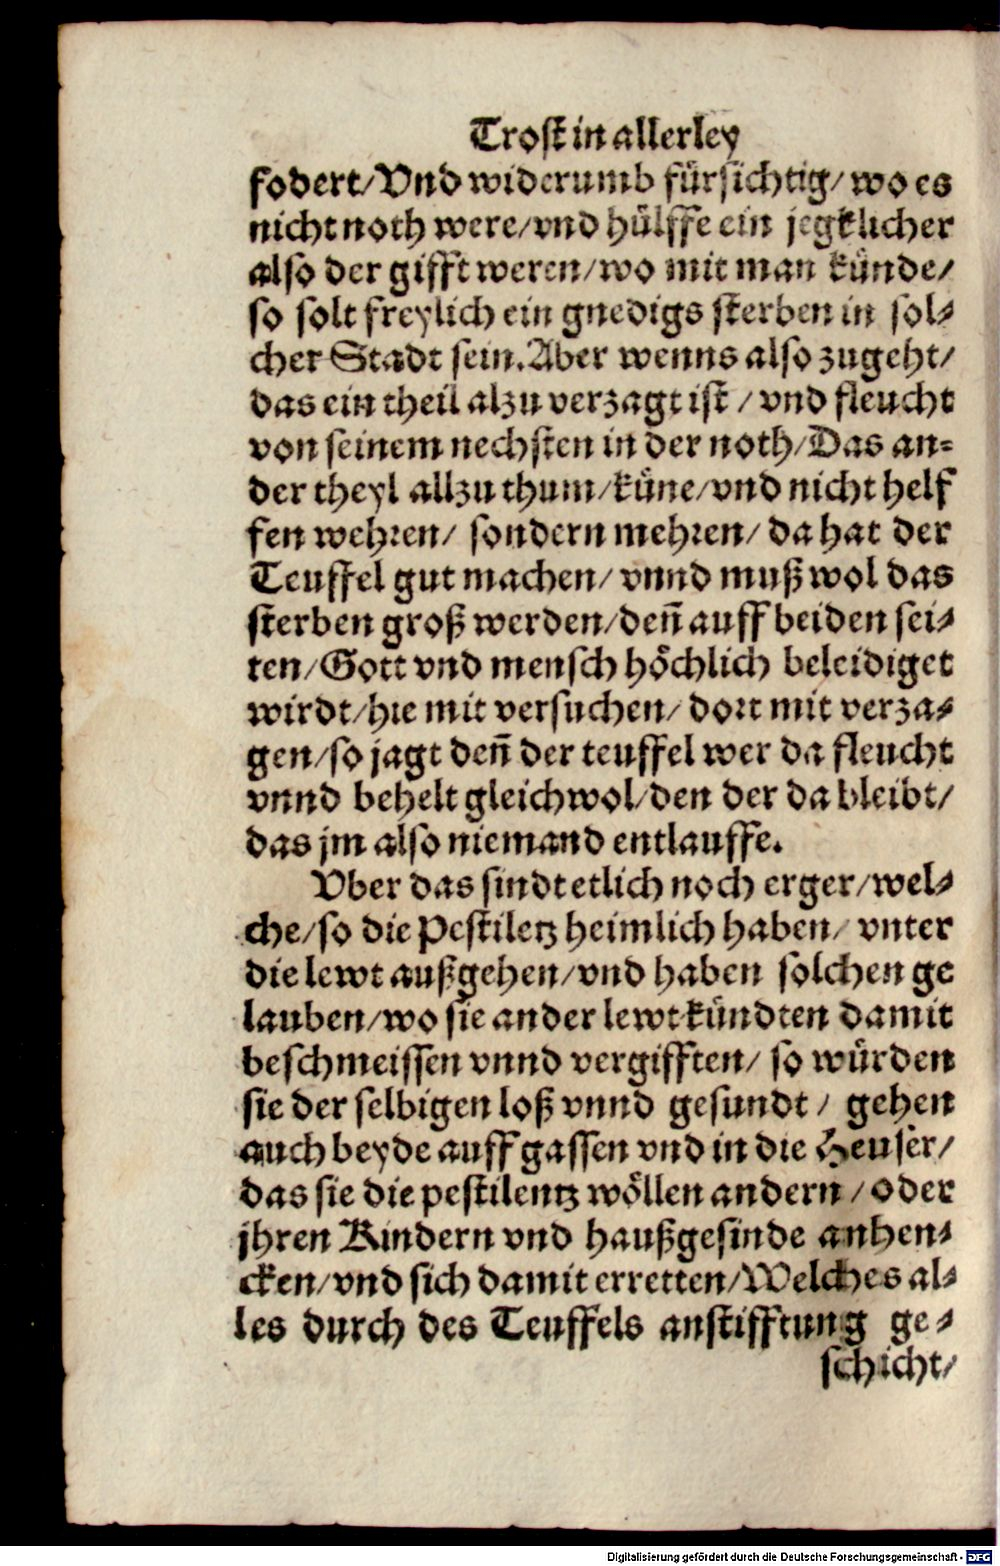 Trost in allerley
fodert/Vnd widerumb fürsichtig/wo es
nicht noth were/vnd hülffe ein jegklicher
also der gifft weren/wo mit man künde/
so solt freylich ein gnedigs sterben in sol⸗
cher Stadt sein. Aber wenns also zugeht/
das ein theil alzu verzagt ist / vnd fleucht
von seinem nechsten in der noth/Das an⸗
der theyl allzu thum/küne/vnd nicht helf
fen wehren/ sondern mehren/ da hat der
Teuffel gut machen/ vnnd muß wol das
sterben groß werden/deñ auff beiden sei⸗
ten/Gott vnd mensch höchlich beleidiget
wirdt/hie mit versuchen/ dort mit verza⸗
gen/so jagt deñ der teuffel wer da fleucht
vnnd behelt gleichwol/den der da bleibt/
das jm also niemand entlauffe.
Vber das sindt etlich noch erger/wel⸗
che/so die Pestiletz heimlich haben/ vnter
die lewt außgehen/vnd haben solchen ge
lauben/wo sie ander lewt kündten damit
beschmeissen vnnd vergifften/ so würden
sie der selbigen loß vnnd gesundt / gehen
auch beyde auff gassen vnd in die Heuser/
das sie die pestilentz wöllen andern / oder
jhren Kindern vnd haußgesinde anhen⸗
cken/vnd sich damit erretten/Welches al⸗
les durch des Teuffels anstifftung ge⸗
schicht/
Digitalisierung gefördert durch die Deutsche Forschungsgemeinschaft - DFG